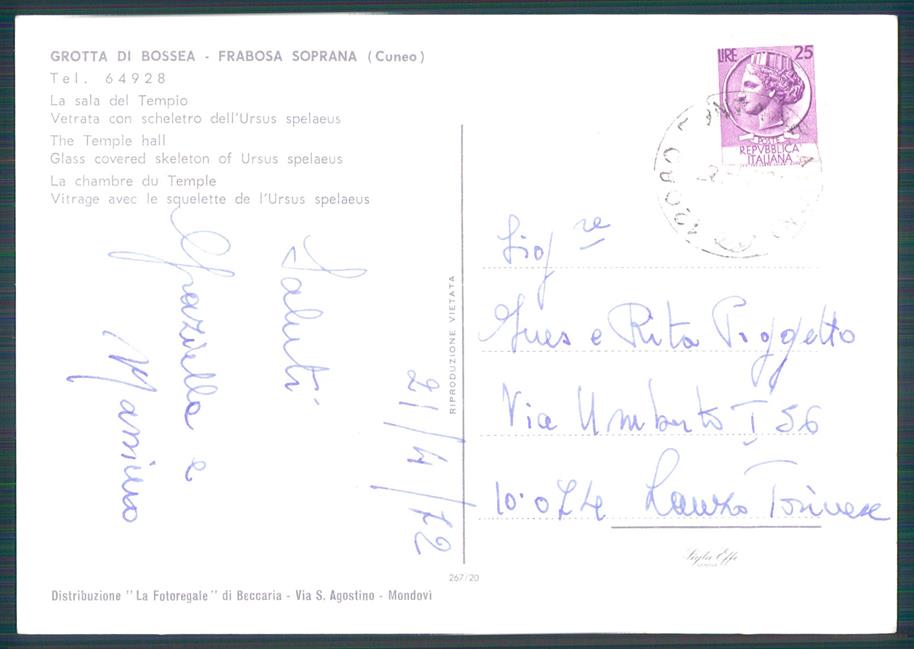 GROTTA DI BOSSEA - FRABOSA SOPRANA (Cuneo)
Tel. 64928
La sala del Tempio
Vetrata con scheletro dell'Ursus spelaeus
The Temple hall
Glass covered skeleton of Ursus spelaeus
La chambre du Temple
Vitrage avec le squelette de l'Ursus spelaeus
Saluti
Graziella e
Massimo
21/4/72
RIPRODUZIONE VIETATA
LIRE 25
POSTE
REPVBBLICA
ITALIANA
12080
Sig.re
Ines e Rita Poggetto
Via Umberto I 56
10.074 Lanzo Torinese
267/20
Distribuzione "La Fotoregale" di Beccaria - Via S. Agostino - Mondovì